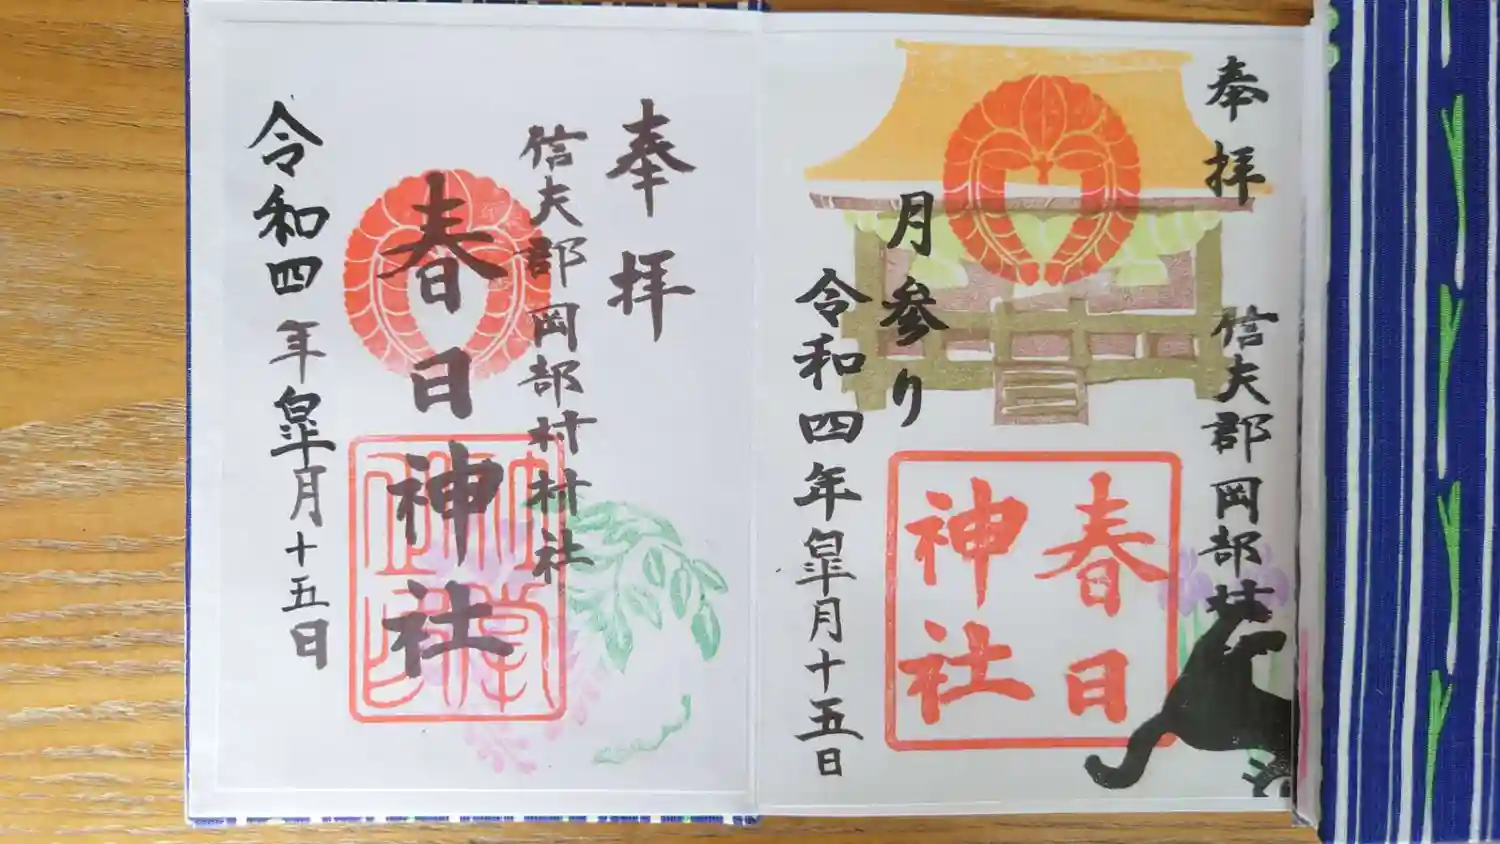 奉拝
信夫郡岡部
月参り
令和四年皐月十五日
春日
神社
奉拝
信夫郡岡部村村社
春日神社
令和四年皐月十五日